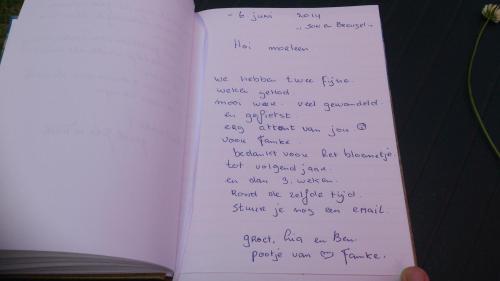 - 6 juni 2014
Hoi
we hebben twee fijne
weken gehad
mooi weer. veel gewandeld.
en gefietst.
erg attent van jou
voor Famke.
bedankt voor het bloemetje.
tot volgend jaar.
en dan 3. weken.
Rond de zelfde tijd.
stuur je nog een EMail.
groet, Ria en Ben.
pootje van ♡ Famke.